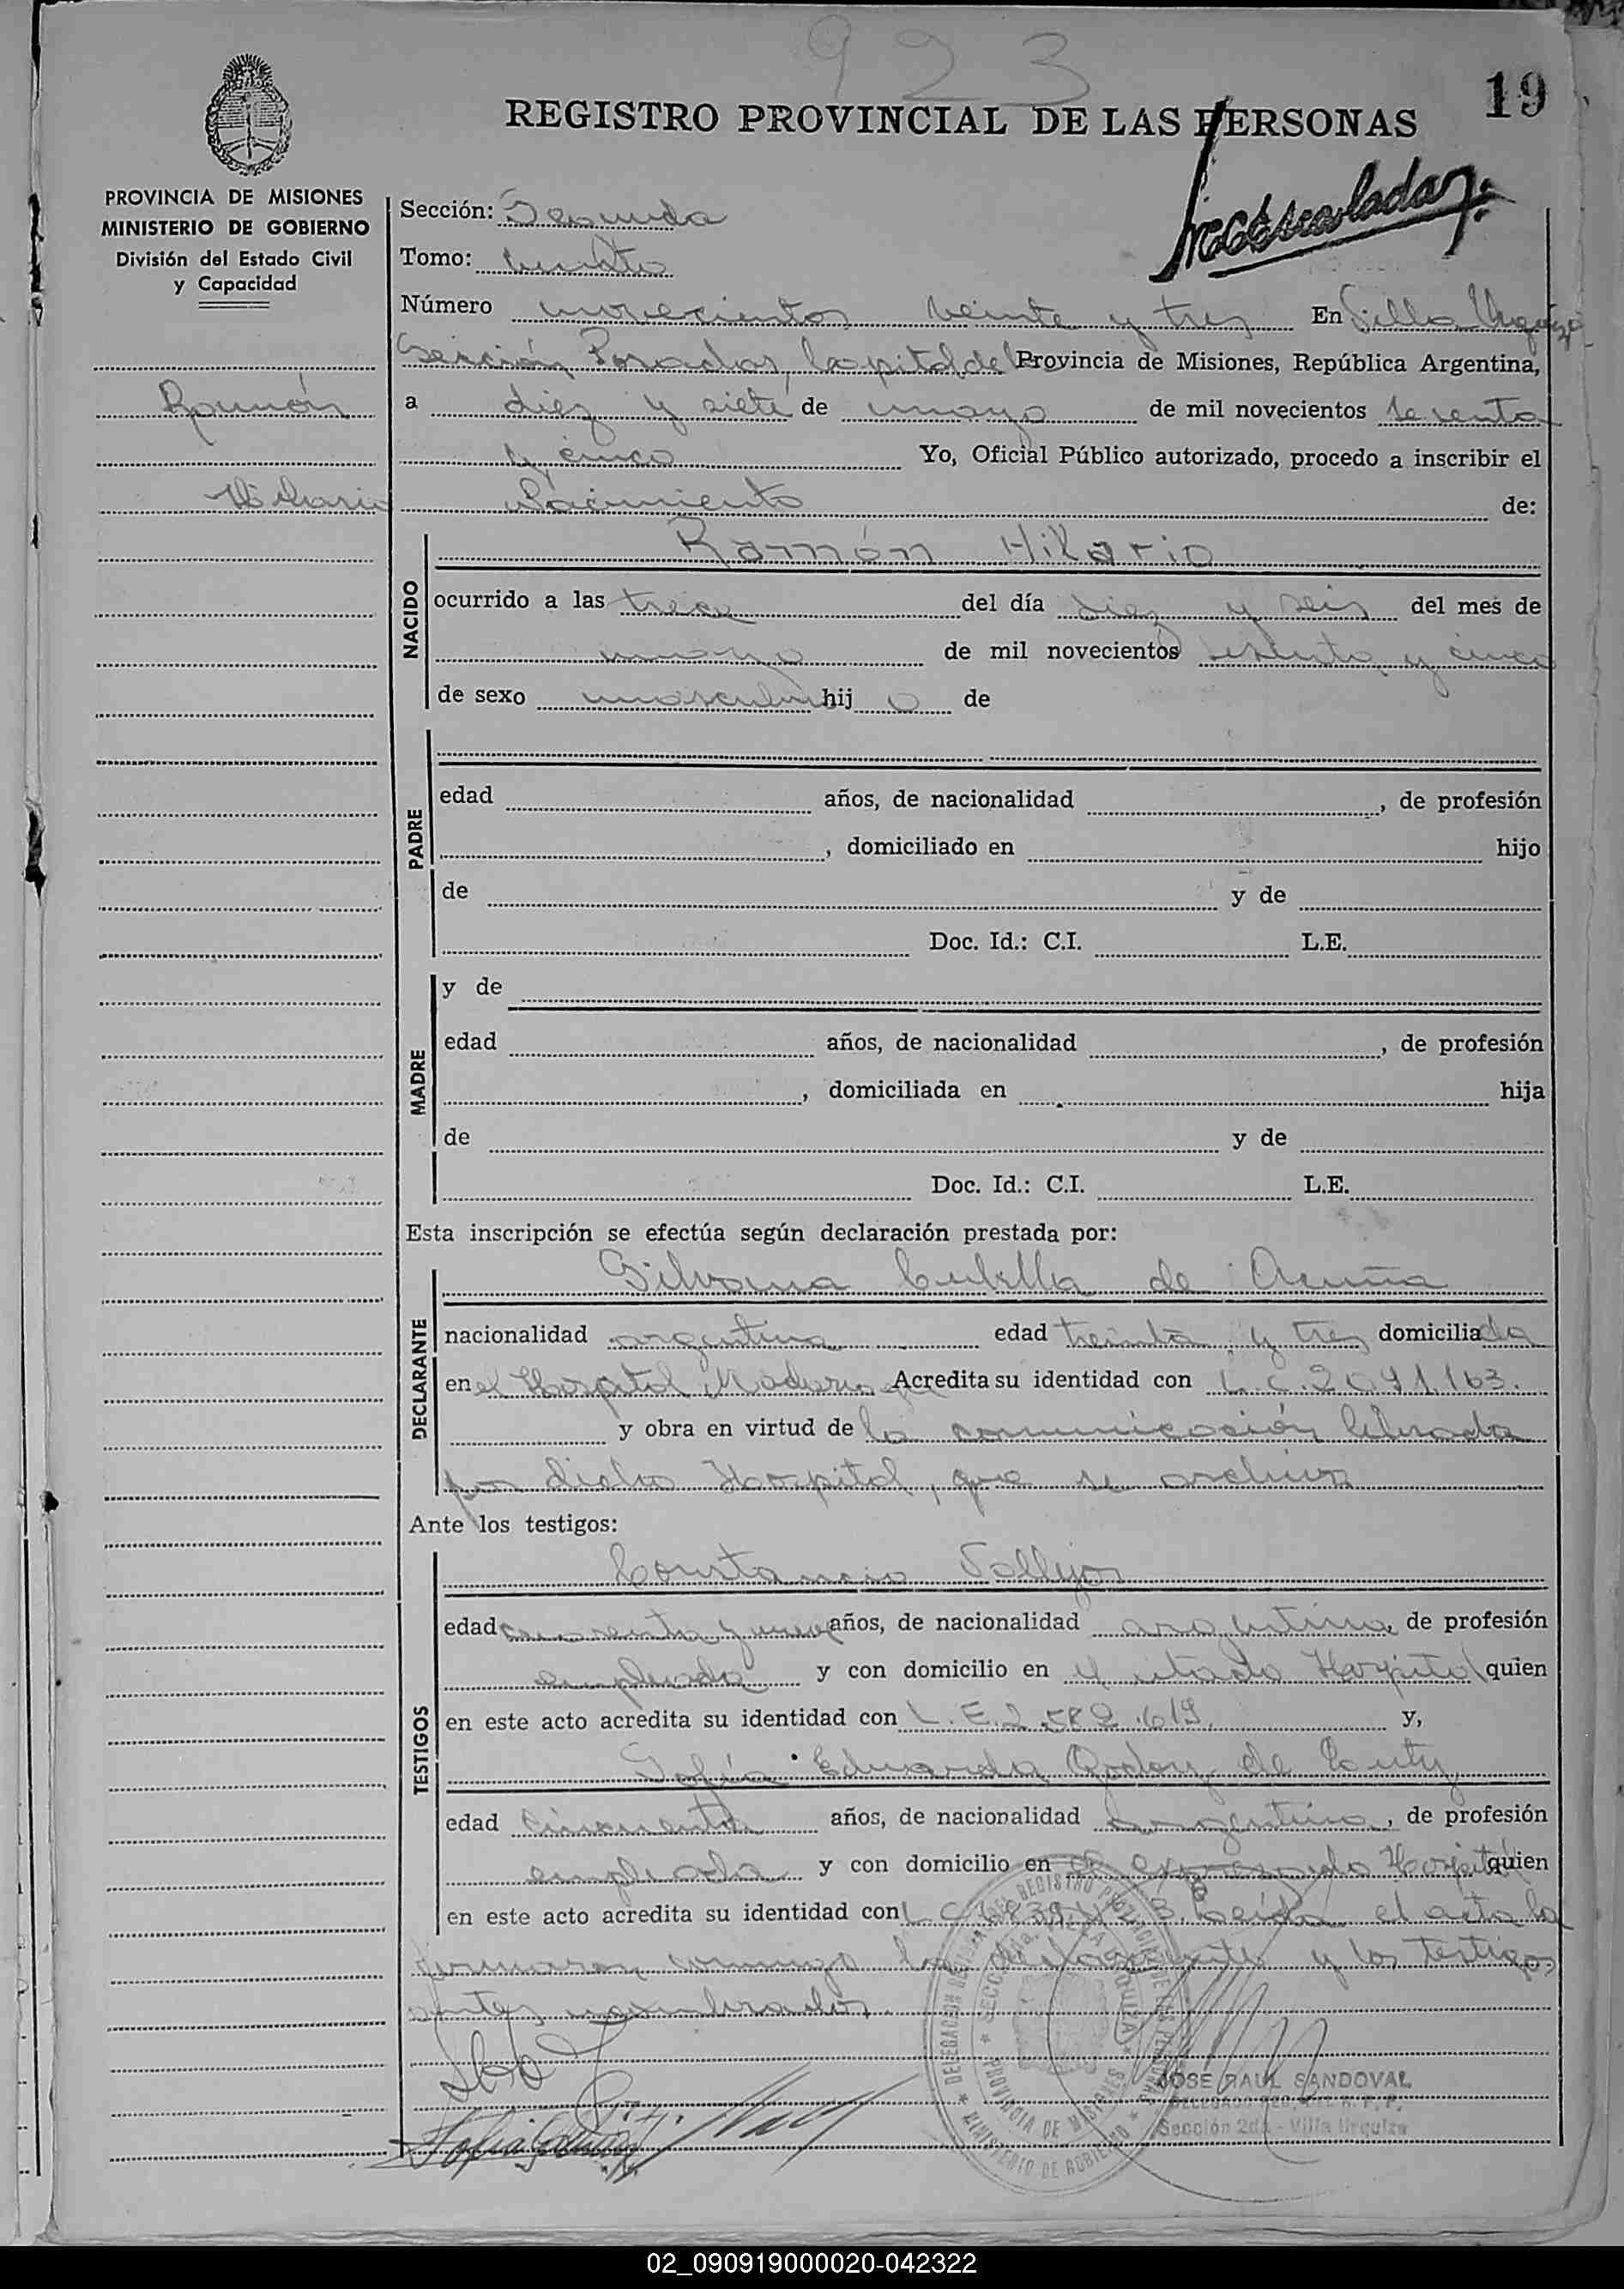 923
19
REGISTRO PROVINCIAL DE LAS PERSONAS
PROVINCIA DE MISIONES
MINISTERIO DE GOBIERNO
División del Estado Civil
y Capacidad
Ramón
Hilario
Sección: Segunda
Tomo: cuarto
Número novecientos veinte y tres En Villa Urquiza
Sección Posadas, Capital de Provincia de Misiones, República Argentina,
a diez y siete de mayo de mil novecientos sesenta
y cinco Yo, Oficial Público autorizado, procedo a inscribir el
Nacimiento de:
NACIDO
Ramón Hilario
ocurrido a las trece del día diez y seis del mes de
mayo de mil novecientos sesenta y cinco
de sexo masculino hijo de
PADRE
edad años, de nacionalidad , de profesión
, domiciliado en hijo
de y de
Doc. Id.: C.I. L.E.
MADRE
y de
edad años, de nacionalidad , de profesión
, domiciliada en hija
de y de
Doc. Id.: C.I. L.E.
Esta inscripción se efectúa según declaración prestada por:
DECLARANTE
Silvana de Acuña
nacionalidad argentina edad treinta y tres domiciliada
en el Hospital Madariaga Acredita su identidad con L.C. 2.071.163.
y obra en virtud de la comunicación librada
por dicho Hospital, que se archiva
Ante los testigos:
TESTIGOS
Constancio Vallejos
edad cuarenta y nueve años, de nacionalidad argentina, de profesión
empleado y con domicilio en el citado Hospital quien
en este acto acredita su identidad con L.E. 2.582.619. y,
Sofía Eduarda Godoy de
edad cincuenta años, de nacionalidad argentina, de profesión
empleada y con domicilio en el expresado Hospital quien
en este acto acredita su identidad con L.C. Leída el acta la
firmaron conmigo la declarante y los testigos
antes nombrados.
DELEGACION DEL REGISTRO PROVINCIAL DE LAS PERSONAS
MINISTERIO DE GOBIERNO
PROVINCIA DE MISIONES
JOSE RAUL SANDOVAL
Sección 2da - Villa Urquiza
02_090919000020-042322